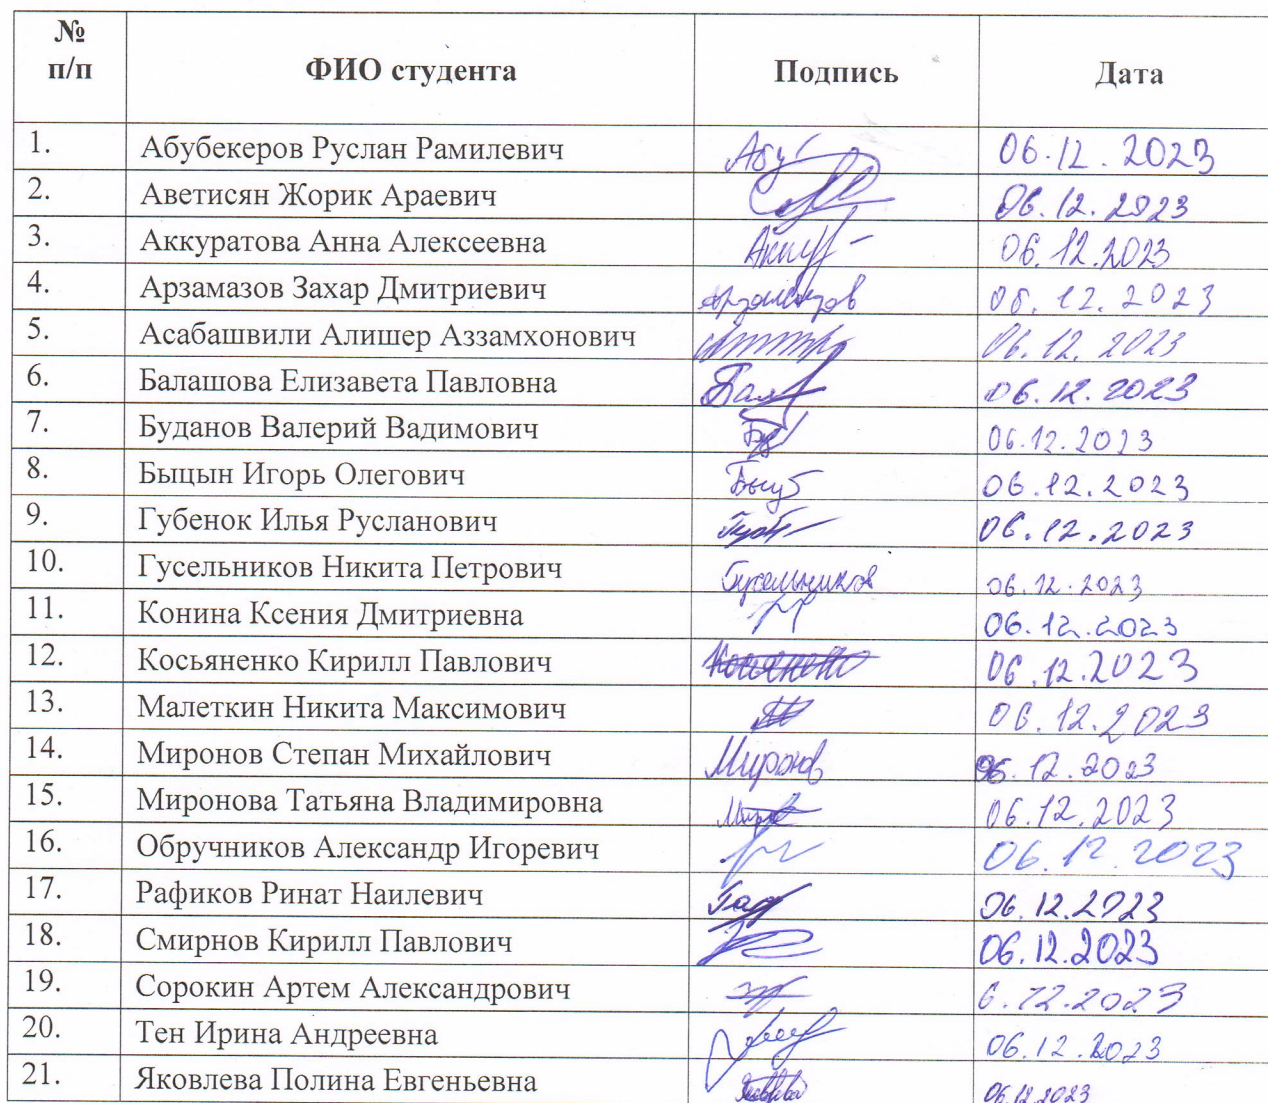 № п/п ФИО студента Подпись Дата
1. Абубекеров Руслан Рамилевич Абу 06.12.2023
2. Аветисян Жорик Араевич 06.12.2023
3. Аккуратова Анна Алексеевна Аккур 06.12.2023
4. Арзамазов Захар Дмитриевич Арзамазов 06.12.2023
5. Асабашвили Алишер Аззамхонович 06.12.2023
6. Балашова Елизавета Павловна Бал 06.12.2023
7. Буданов Валерий Вадимович Буд 06.12.2023
8. Быцын Игорь Олегович Быц 06.12.2023
9. Губенок Илья Русланович Губ 06.12.2023
10. Гусельников Никита Петрович Гусельников 06.12.2023
11. Конина Ксения Дмитриевна 06.12.2023
12. Косьяненко Кирилл Павлович 06.12.2023
13. Малеткин Никита Максимович 06.12.2023
14. Миронов Степан Михайлович Миронов 06.12.2023
15. Миронова Татьяна Владимировна 06.12.2023
16. Обручников Александр Игоревич 06.12.2023
17. Рафиков Ринат Наилевич 06.12.2023
18. Смирнов Кирилл Павлович 06.12.2023
19. Сорокин Артем Александрович 6.12.2023
20. Тен Ирина Андреевна 06.12.2023
21. Яковлева Полина Евгеньевна 06.12.2023